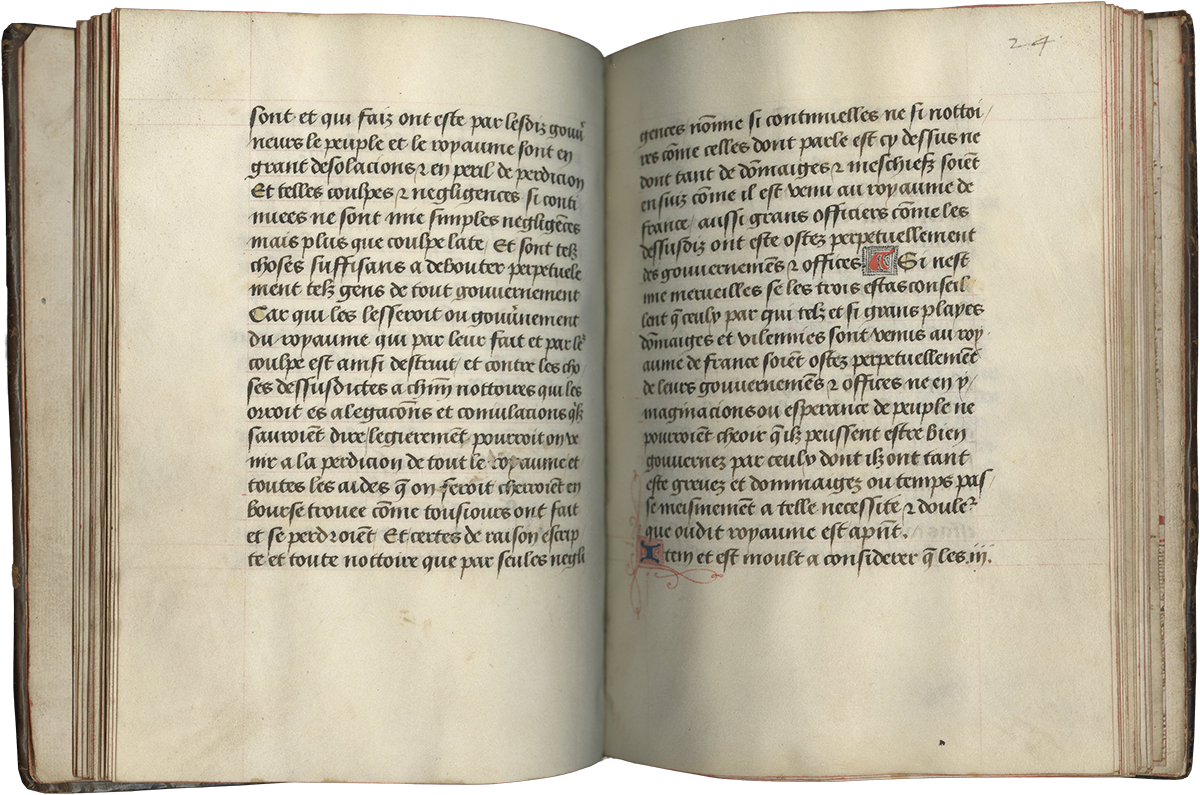 sont et qui faiz ont este par lesdiz gouu̾
neurs le peuple et le royaume sont en
grant desolacions ⁊ en peril de perdicion
Et telles coulpes ⁊ negligences si conti
nuees ne sont mie simples negligēces
mais plus que coulpe late / Et sont telz
choses suffisans a debouter perpetuele
ment telz gens de tout gouuernement
Car qui les lesseroit ou gouu̾nement
du royaume qui par leur fait et par le͛
coulpe est ainsi destruit / et contre les cho
ses dessusdictes a chūn nottoires qui les
orroit es alegacōns et
sauroiēt dire / legierement pourroit on ve
nir a la perdicion de tout le royaume et
toutes les aides q̄ on feroit cherroiēt en
bourse trouee cōme tousiours ont fait
et se perdroiēt Et certes de raison escrip
te et toute nottoire que par seules negli
24
gences nōme si continuelles ne si nottoi /
res cōme celles dont parle est cy dessus ne
dont tant de dōmaiges ⁊ meschiefz soiēt
en suiz cōme il est venu au royaume de
france / aussi grans officiers cōme les
dessusdiz ont este ostez perpetuellement
des gouuernemēs ⁊ offices. Si nest
mie merueilles se les trois estas conseil
lent q̄ ceulx par qui telz et si grans playes
dōmaiges et vilennies sont venus au roy
aume de france soiēt ostez perpetuellemēt
de leurs gouuernemēs ⁊ offices ne en y /
maginacions ou esperance de peuple ne
pourroiēt cheoir q̄ ilz peussent estre bien
gouuernez par ceulx dont ilz ont tant
este greuez et dommaigez ou temps pas /
se meismement a telle necessite ⁊ doule͛
que oudit royaume est a pn̄t.
Item et est moult a considerer q̄ les .iij.